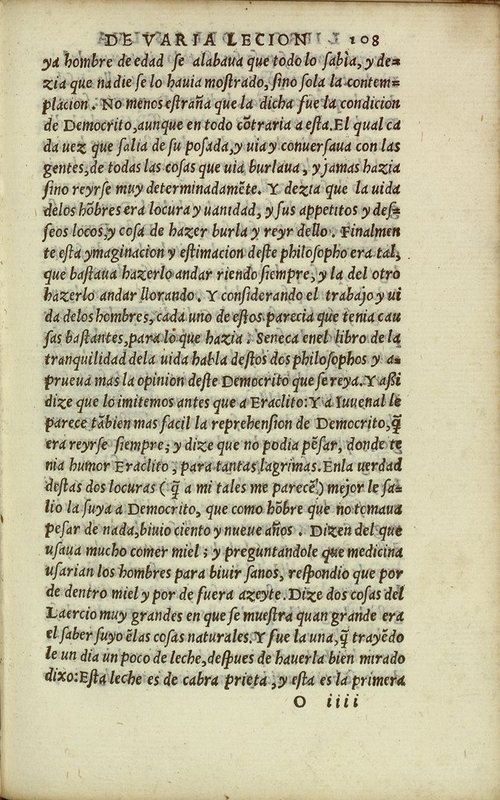 DE VARIA LECION 108
ya hombre de edad se alabaua que todo lo sabia, y de=
zia que nadie se lo hauia mostrado, sino sola la contem=
placion. No menos estraña que la dicha fue la condicion
de Democrito, aunque en todo cõtraria a esta. El qual ca
da uez que salia de su posada, y uia y conuersaua con las
gentes, de todas las cosas que uia burlaua, y jamas hazia
sino reyrse muy determinadamẽte. Y dezia que la uida
delos hõbres era locura y uanidad, y sus appetitos y des=
seos locos, y cosa de hazer burla y reyr dello. Finalmen
te esta ymaginacion y estimacion deste philosopho era tal,
que bastaua hazerlo andar riendo siempre, y la del otro
hazerlo andar llorando. Y considerando el trabajo y ui
da delos hombres, cada uno de estos parecia que tenia cau
sas bastantes, para lo que hazia. Seneca enel libro de la
tranquilidad dela uida habla destos dos philosophos y a=
prueua mas la opinion deste Democrito que se reya. Y assi
dize que lo imitemos antes que a Eraclito: Y a Iuuenal le
parece tãbien mas facil la reprehension de Democrito, q̃
era reyrse siempre; y dize que no podia pẽsar, donde te
nia humor Eraclito, para tantas lagrimas. Enla uerdad
destas dos locuras (q̃ a mi tales me parecẽ) mejor le sa=
lio la suya a Democrito, que como hõbre que no tomaua
pesar de nada, biuio ciento y nueue años. Dizen del que
usaua mucho comer miel; y preguntandole que medicina
usarian los hombres para biuir sanos, respondio que por
de dentro miel y por de fuera azeyte. Dize dos cosas del
Laercio muy grandes en que se muestra quan grande era
el saber suyo ẽlas cosas naturales. Y fue la una, q̃ trayẽdo
le un dia un poco de leche, despues de hauerla bien mirado
dixo: Esta leche es de cabra prieta, y esta es la primera
O iiii